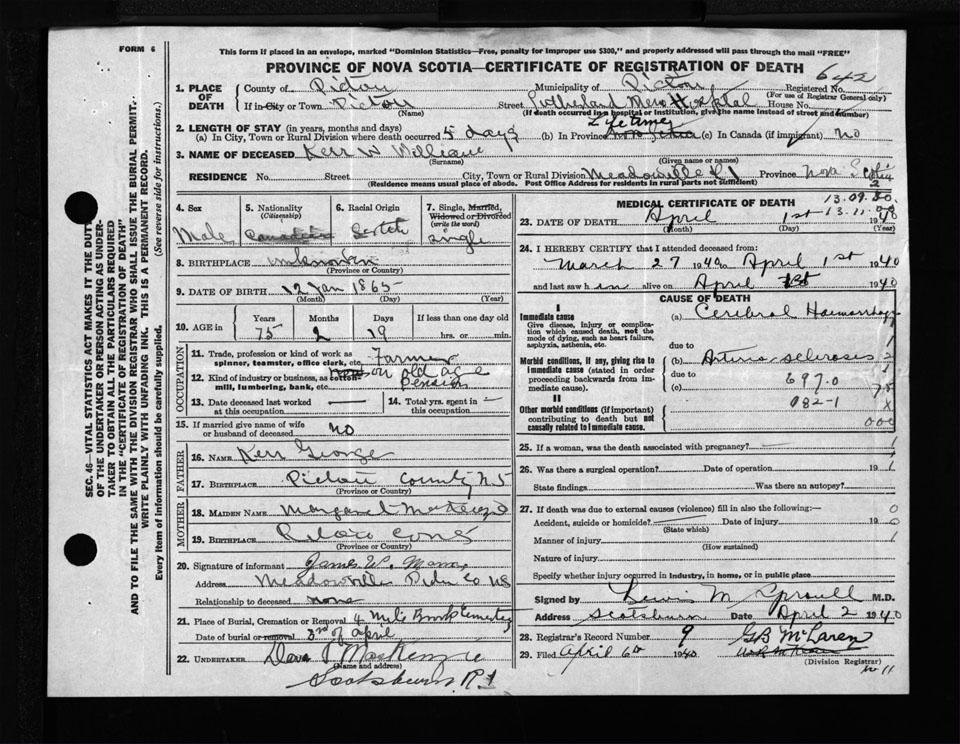 FORM 6
This form if placed in an envelope, marked "Dominion Statistics—Free, penalty for improper use $300," and properly addressed will pass through the mail "FREE"
PROVINCE OF NOVA SCOTIA—CERTIFICATE OF REGISTRATION OF DEATH
642
1. PLACE OF DEATH
County of Pictou Municipality of Pictou Registered No.
(For use of Registrar General only)
If in City or Town Pictou Street Sutherland Mem Hospital House No.
(Name) (If death occurred in a hospital or institution, give the name instead of street and number)
2. LENGTH OF STAY (in years, months and days) Life time
(a) In City, Town or Rural Division where death occurred 5 days (b) In Province Nova Scotia (c) In Canada (if immigrant) No
3. NAME OF DECEASED Kerr W William
(Surname) (Given name or names)
RESIDENCE No. Street City, Town or Rural Division Meadowville R1 Province Nova Scotia
(Residence means usual place of abode. Post Office Address for residents in rural parts not sufficient)
2
4. Sex
Male
5. Nationality
(Citizenship)
Canadian
6. Racial Origin
Scotch
7. Single, Married, Widowed or Divorced
(write the word)
Single
8. BIRTHPLACE unknown
(Province or Country)
9. DATE OF BIRTH 12 Jan 1865
(Month) (Day) (Year)
10. AGE in
Years Months Days If less than one day old
75 2 19 hrs. or min.
OCCUPATION
11. Trade, profession or kind of work as spinner, teamster, office clerk, etc. Farmer
12. Kind of industry or business, as cotton-mill, lumbering, bank, etc. on old age pension
13. Date deceased last worked at this occupation —
14. Total yrs. spent in this occupation —
15. If married give name of wife or husband of deceased No
FATHER
16. NAME Kerr George
17. BIRTHPLACE Pictou County NS
(Province or Country)
MOTHER
18. MAIDEN NAME Margaret McKenzie
19. BIRTHPLACE Pictou
(Province or Country)
20. Signature of informant James W.
Address Meadowville Co NS
Relationship to deceased none
21. Place of Burial, Cremation or Removal 4 Mile Brook Cemetery
Date of burial or removal 3rd of April
22. UNDERTAKER Dan MacKenzie
(Name and address)
Scotsburn R 1
MEDICAL CERTIFICATE OF DEATH
13.09.80.
13-11
23. DATE OF DEATH April 1st 1940
(Month) (Day) (Year)
24. I HEREBY CERTIFY that I attended deceased from:
March 27 1940 to April 1st 1940
and last saw him alive on April 1st 1940
CAUSE OF DEATH
I
Immediate cause
Give disease, injury or complication which caused death, not the mode of dying, such as heart failure, asphyxia, asthenia, etc.
(a) Cerebral Haemorrhage
due to
Morbid conditions, if any, giving rise to immediate cause (stated in order proceeding backwards from immediate cause).
(b) Arterio sclerosis
due to
(c) 697.0
II
082-1
Other morbid conditions (if important) contributing to death but not causally related to immediate cause.
000
25. If a woman, was the death associated with pregnancy?
26. Was there a surgical operation? Date of operation 19
State findings Was there an autopsy?
27. If death was due to external causes (violence) fill in also the following:—
Accident, suicide or homicide? Date of injury 19
(State which)
Manner of injury
(How sustained)
Nature of injury
Specify whether injury occurred in industry, in home, or in public place
Signed by Lewis M Sproull M.D.
Address Scotsburn Date April 2 1940
28. Registrar's Record Number 9
29. Filed April 6th 1940 GB McLaren
(Division Registrar)
No 11
SEC. 46—VITAL STATISTICS ACT MAKES IT THE DUTY OF THE UNDERTAKER OR PERSON ACTING AS UNDERTAKER TO OBTAIN ALL THE PARTICULARS REQUIRED IN THE "CERTIFICATE OF REGISTRATION OF DEATH" AND TO FILE THE SAME WITH THE DIVISION REGISTRAR WHO SHALL ISSUE THE BURIAL PERMIT.
WRITE PLAINLY WITH UNFADING INK. THIS IS A PERMANENT RECORD.
Every item of information should be carefully supplied. (See reverse side for instructions.)